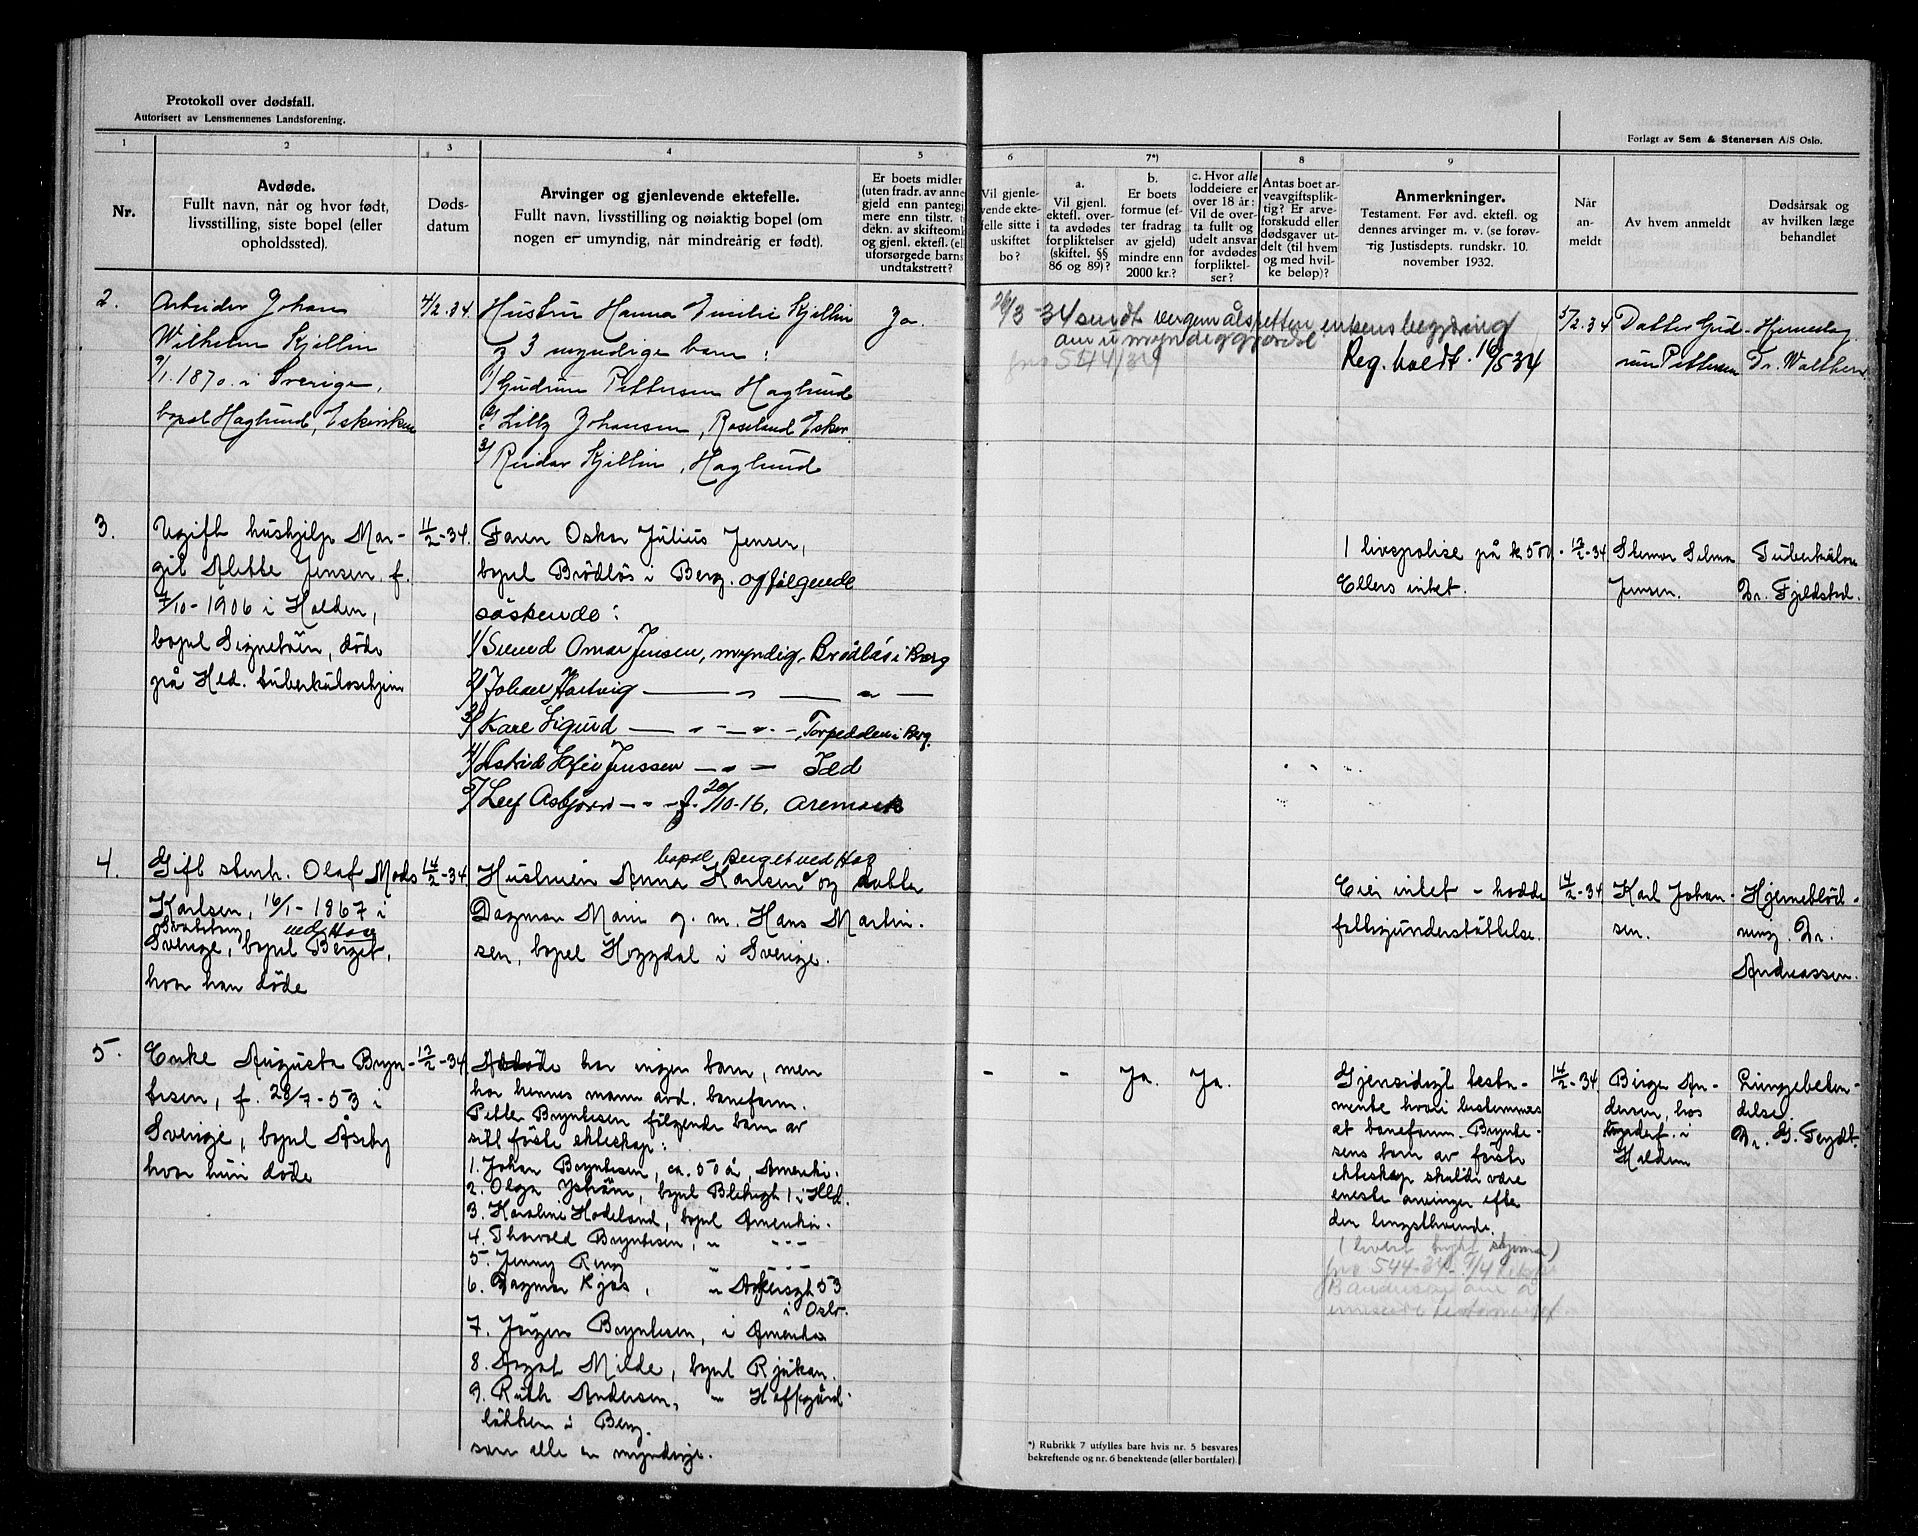 Protokoll over dødsfall.
Autorisert av Lensmennenes Landsforening.
Forlagt av Sem & Stenersen A/S Oslo.
1 2 3 4 5 6 7*) 8 9
Nr.
Avdøde.
Fullt navn, når og hvor født,
livsstilling, siste bopel (eller
opholdssted).
Døds-
datum
Arvinger og gjenlevende ektefelle.
Fullt navn, livsstilling og nøiaktig bopel (om
nogen er umyndig, når mindreårig er født).
Er boets midler
(uten fradr. av anne
gjeld enn pantegj
mere enn tilstr. t
dekn. av skifteomk
og gjenl. ektef. (ell
uforsørgede barns
undtakstrett?
Vil gjenle-
vende ekte-
felle sitte i
uskiftet
bo?
a.
Vil gjenl.
ektefl. over-
ta avdødes
forpliktelser
(skiftel. §§
86 og 89)?
b.
Er boets
formue (ef-
ter fradrag
av gjeld)
mindre enn
2000 kr.?
c. Hvor alle
loddeiere er
over 18 år:
Vil de over-
ta fullt og
udelt ansvar
for avdødes
forpliktel-
ser?
Antas boet ar-
veavgiftsplik-
tig? Er arve-
forskudd eller
dødsgaver ut-
delt (til hvem
og med hvil-
ke beløp)?
Anmerkninger.
Testament. Før avd. ektefl. og
dennes arvinger m. v. (se forøv-
rig Justisdepts. rundskr. 10.
november 1932.
Når
an-
meldt
Av hvem anmeldt
Dødsårsak og
av hvilken læge
behandlet
2.
Arbeider Johan
Wilhelm Kjellin
9/1.1870. i Sverige,
bopel Haglund, Eskeviken
4/2.34
Hustru Hanna Emilie Kjellin
og 3 myndige barn:
1/ Gudrun Pettersen Haglund
2/ Lilly Johansen, Roseland Esker.
3/ Reidar Kjellin, Haglund
Ja.
26/3-34 sendt vergemålsretten enkens begjæring
om umyndiggjørelse
544/34
Reg. holdt 16/5 34
5/2.34
Datter Gud-
run Pettersen
Hjerneslag
Dr. Walthers
3.
Ugift hushjelp Mar-
git Alette Jensen f.
7/10-1906 i Halden,
bopel Signebøen, døde
på Hld. tuberkulosehjem
11/2-34.
Faren Oskar Julius Jensen,
bopel Brödlös i Berg. og følgende
söskende:
1/ Svend Omar Jensen, myndig, Brödlös i Berg
2/ Johan Hartvig — " — " —
3/ Kåre Sigurd — " — " — Torpedalen i Berg.
4/ Astrid Jenssen — " — Idd
5/ Leif Asbjørn — " — f. 20/10-16, Aremark
1 livspolise på k 500.-
Ellers intet.
12/2-34
Selma
Jensen.
Tuberkulose
Dr. Fjeldstad.
4.
Gift stenh. Olaf Mods
Karlsen, 16/1-1867 i
Sverige, bopel Berget,
ved Hov
hvor han døde
14/2-34
bopel Berget ved Hov
Hustruen Anna Karlsen og datter
Dagmar Marie g. m. Hans Martin-
sen, bopel Hogdal i Sverige.
Eier intet – hadde
fattigunderstöttelse.
14/2-34
Karl Johan-
sen.
Hjerneblöd-
ning. Dr.
Andreassen.
5.
Enke Augusta Bryn-
tesen, f. 28/7-53 i
Sverige, bopel Åseby
hvor hun døde
13/2-34
Avdøde har ingen barn, men
har hennes mann avd. baneform.
Petter Bryntesen fölgende barn av
sitt første ekteskap:
1. Johan Bryntesen, ca. 50 år, Amerika.
2. Olga Yström, bopel Blekegt 1 i Hld.
3. Karoline Hadeland, bopel Amerika.
4. Thorvald Bryntesen, " - - -
5. Jenny Ring " - - -
6. Dagmar Kjos, " Akersgt 53
i Oslo.
7. Jörgen Bryntesen, i Amerika
8. Aagot Milde, bopel Rjukan.
9. Ruth Andersen, " Hafsgård-
løkken i Berg.
som alle er myndige.
- - Ja. Ja.
Gjensidigt testa-
mente hvori bestemmes
at baneform. Brynte-
sens barn av første
ekteskap skulde være
eneste arvinger efter
den lengstlevende.
544-34
14/2-34
Birger An-
dersen, hos
i
Halden
Lungebeten-
delse.
Dr. G. Feydt.
*) Rubrikk 7 utfylles bare hvis nr. 5 besvares
bekreftende og nr. 6 benektende (eller bortfaler)